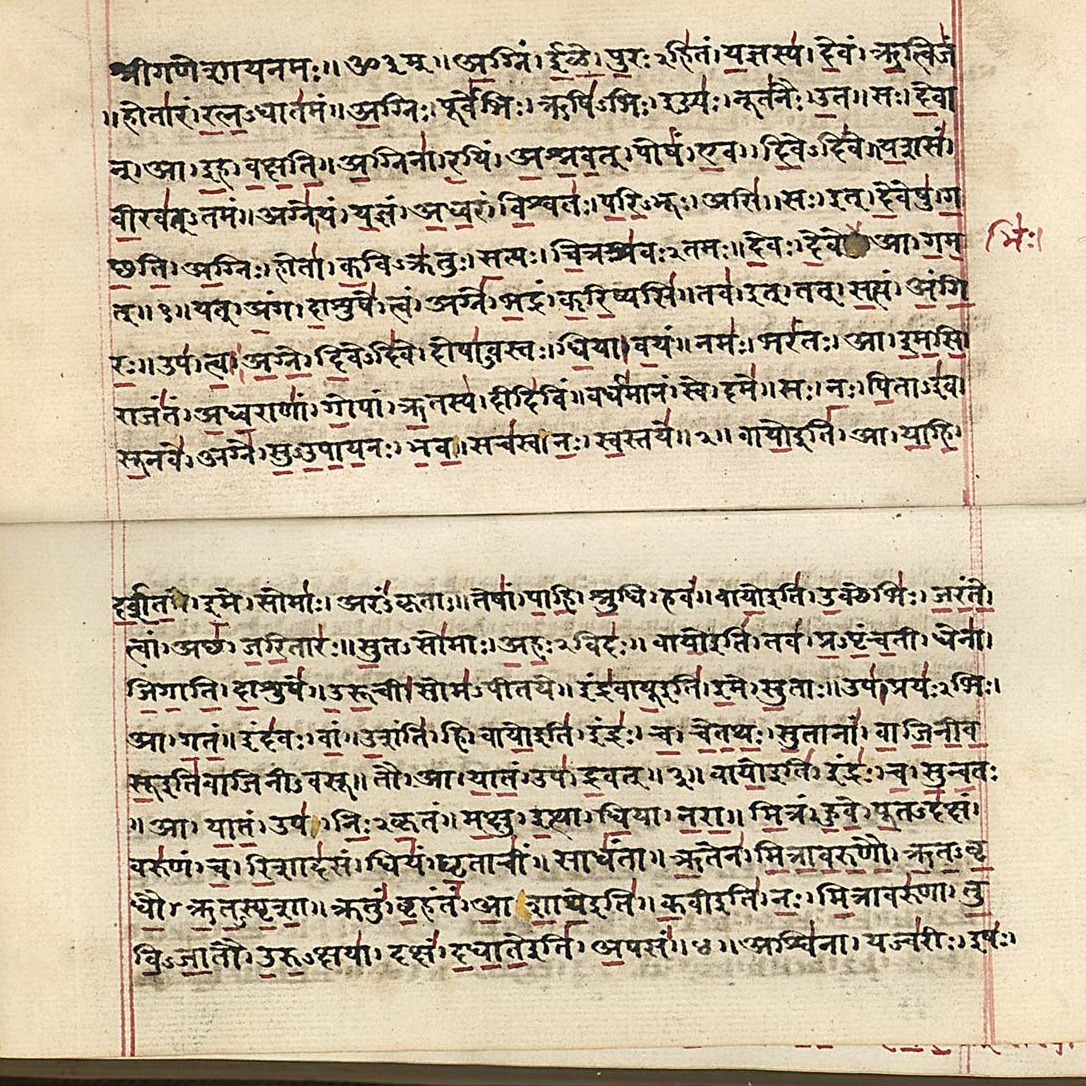 श्रीगणेशायनमः॥ॐ३म्॥अ॒ग्निं। ई॒ळे॒। पु॒रः२हि॑तं। य॒ज्ञस्य॑। दे॒वं। ऋ॒त्विजं॑
॥होता॑रं। र॒त्न॒ऽधात॑मं॥अ॒ग्निः। पूर्वे॑भिः। ऋषि॑ऽभिः। ईड्यः॑। नूत॑नैः। उ॒त॥सः। दे॒वा
न्। आ। इ॒ह। व॒क्ष॒ति॒॥अ॒ग्निना॑। र॒यिं। अ॒श्न॒व॒त्। पोषं॑। ए॒व। दि॒वेऽदि॑वे॥य॒शसं॑
वी॒रव॑त्ऽतमं॥अग्ने॑। यं। य॒ज्ञं। अ॒ध्व॒रं। वि॒श्वतः॑। प॒रि॒ऽभूः। असि॑॥सः। इत्। दे॒वेषु॑। ग॒
च्छ॒ति॒। अ॒ग्निः। होता॑। क॒विऽक्र॑तुः। स॒त्यः। चि॒त्रश्र॑वः२तमः॥दे॒वः। दे॒वे आ। ग॒म॒
भिः॑।
त्॥१॥यत्। अं॒ग। दा॒शुषे॑। त्वं। अग्ने॑। भ॒द्रं। क॒रि॒ष्यसि॑॥तव॑। इत्। तत्। स॒त्यं। अं॒गि॒
रः॒॥उप॑। त्वा॒। अ॒ग्ने॒। दि॒वेऽदि॑वे। दोषा॑ऽवस्तः। धि॒या। व॒यं॥नमः॑। भर॑तः। आ। इ॒म॒सि॒।
राजं॑तं। अ॒ध्व॒राणां॑। गो॒पां। ऋ॒तस्य॑। दीदि॑विं॥वर्ध॑मानं। स्वे। दमे॑॥सः। नः॒। पि॒ताऽइ॑व।
सू॒नवे॑। अग्ने॑। सु॒ऽउ॒पा॒य॒नः। भ॒व॒॥सच॑स्व। नः॒। स्व॒स्तये॑॥२॥ वायो॒इति॑। आ। या॒हि॒।
द॒र्श॒त॒। इ॒मे। सोमाः॑। अरं॑ऽकृताः॥तेषां॑। पा॒हि॒। श्रु॒धि। हवं॑॥वायो॒इति॑। उ॒क्थेभिः॑। ज॒रं॒ते॒।
त्वां। अच्छ॑। ज॒रि॒तारः॑॥सु॒तऽसो॑माः। अ॒हः॒२विदः॑॥ वायो॒इति॑। तव॑। प्र॒ऽपृं॒च॒ती। धेना॑।
जि॒गा॒ति॒। दा॒शुषे॑॥उ॒रू॒ची। सोम॑ऽपीतये॥ इंद्र॑वायू॒इति॑। इ॒मे। सु॒ताः॥उप॑। प्रयः॑२भिः।
आ। ग॒तं॒॥इंद॑वः। वां॒। उ॒शंति॑। हि। वायो॒इति॑। इंद्रः॑। च॒। चे॒त॒थः॒। सु॒तानां॑। वा॒जि॒नी॒व॒
सू॒इति॑वाजिनीऽवसू॥ तौ। आ। या॒तं॒। उप॑। द्र॒वत्॥३॥ वायो॒इति॑। इंद्रः॑। च॒। सु॒न्व॒तः
॥आ। या॒तं॒। उप॑। निः॒२कृ॒तं॥म॒क्षु। इ॒त्था। धि॒या। न॒रा॒॥ मि॒त्रं। हु॒वे॒। पू॒तऽद॑क्षं।
वरु॑णं। च॒। रि॒शाद॑सं। धियं॑। घृ॒ताचीं॑। साधं॑ता॥ ऋ॒तेन॑। मि॒त्रा॒व॒रु॒णौ॒। ऋ॒त॒ऽवृ॒
धौ॒। ऋ॒त॒ऽस्पृ॒शा॒॥ क्रतुं॑। बृ॒हंतं॑। आ॒शा॒थे॒इति॑॥क॒वीइति॑। नः॒। मि॒त्रावरु॑णा। तु॒
वि॒ऽजा॒तौ। उ॒रु॒ऽक्षया॑। दक्षं॑। द॒धा॒ते॒इति॑। अ॒पसं॑॥४॥ अश्वि॑ना। यज्व॑रीः। इषः॑।